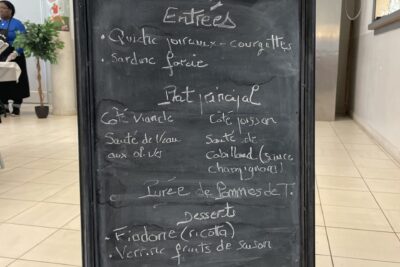 Entrées
• Quiche poireaux - courgettes
• Sardine farcie
Plat principal
Côté viande
Côté poisson
Sauté de Veau
aux olives
Sauté de
Cabillaud (sauce
champignons)
Purée de Pommes de T.
Desserts
• Fiadone (ricotta)
• Verrine fruits de saison